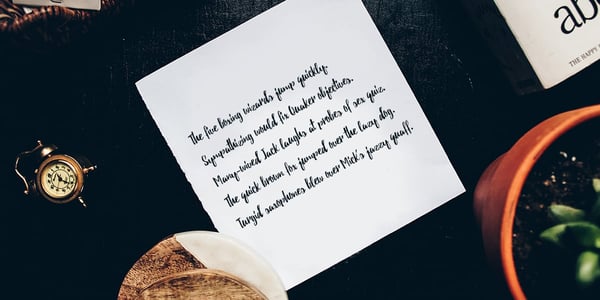 The five boxing wizards jump quickly.
Sympathizing would fix Quaker objectives.
Many-wived Jack laughs at probes of sex quiz.
The quick brown fox jumped over the lazy dog.
Turgid saxophones blew over Mick's jazzy quaff.
THE HAPPY